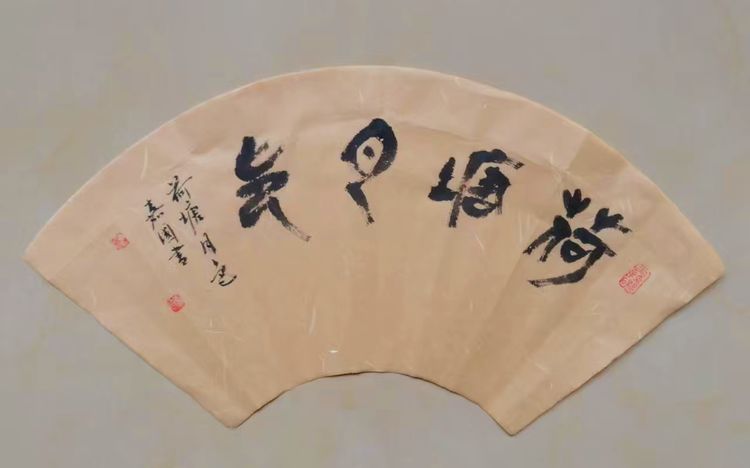 荷塘月色
荷塘月色
嘉国书